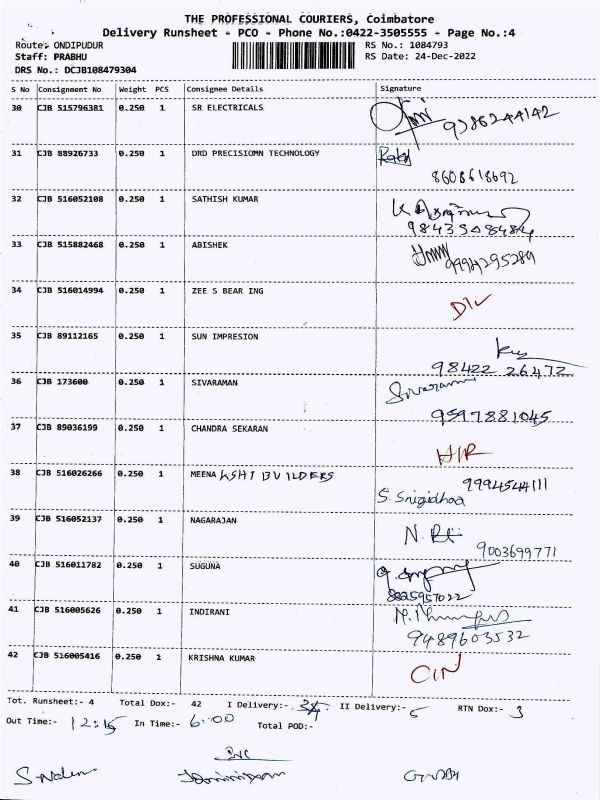 THE PROFESSIONAL COURIERS, Coimbatore
Delivery Runsheet - PCO - Phone No.:0422-3505555 - Page No.:4
Route: ONDIPUDUR RS No.: 1084793
Staff: PRABHU RS Date: 24-Dec-2022
DRS No.: DCJB108479304
S No Consignment No Weight PCS Consignee Details Signature
30 CJB 515796381 0.250 1 SR ELECTRICALS
31 CJB 88926733 0.250 1 DRD PRECISIOMN TECHNOLOGY
8608618692
32 CJB 516052108 0.250 1 SATHISH KUMAR
33 CJB 515882468 0.250 1 ABISHEK
34 CJB 516014994 0.250 1 ZEE S BEAR ING
35 CJB 89112165 0.250 1 SUN IMPRESION
98422 26472
36 CJB 173600 0.250 1 SIVARAMAN
9597881045
37 CJB 89036199 0.250 1 CHANDRA SEKARAN
38 CJB 516026266 0.250 1 MEENA KSHI BUILDERS 9994544111
39 CJB 516052137 0.250 1 NAGARAJAN
9003699771
40 CJB 516011782 0.250 1 SUGUNA
8825957022
41 CJB 516005626 0.250 1 INDIRANI
9489603532
42 CJB 516005416 0.250 1 KRISHNA KUMAR
Tot. Runsheet:- 4 Total Dox:- 42 I Delivery:- 34 II Delivery:- 5 RTN Dox:- 3
Out Time:- 12:15 In Time:- 6:00 Total POD:-